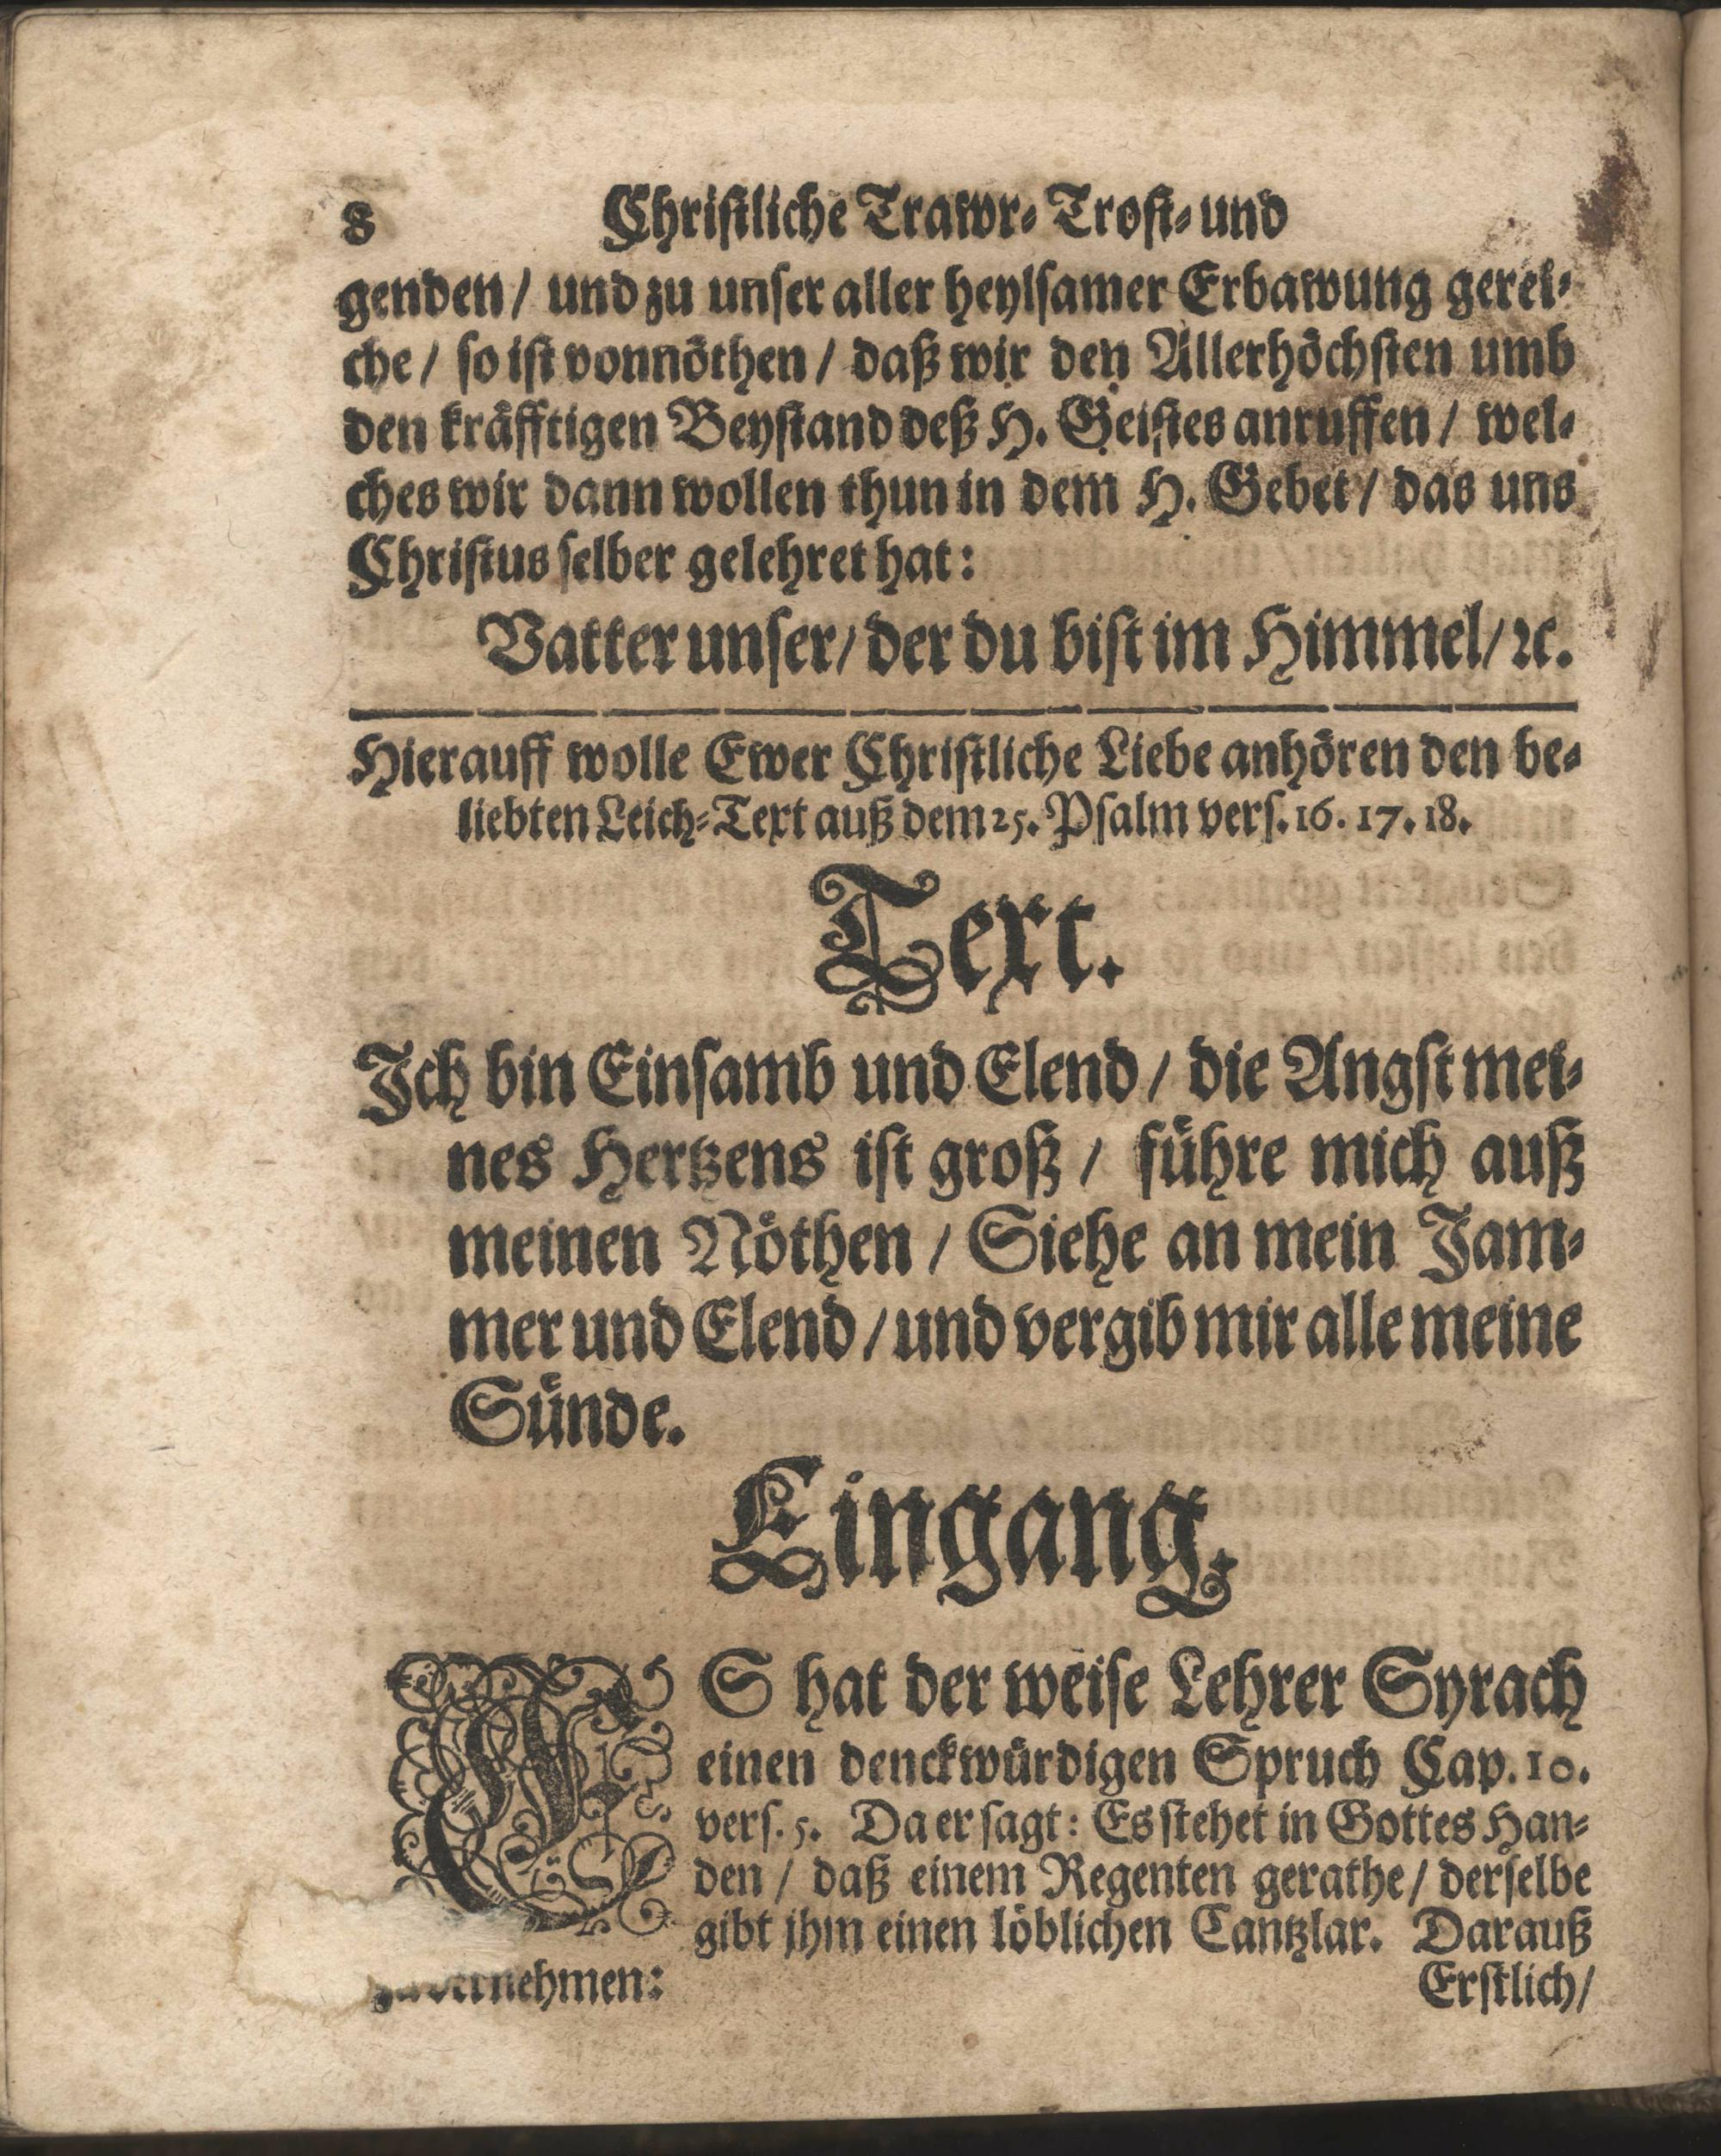 8 Chriſtliche Trawr- Troſt- und
genden / und zu unſer aller heylſamer Erbawung gerei-
che / ſo iſt vonnöthen / daß wir den Allerhöchſten umb
den kräfftigen Beyſtand deß H. Geiſtes anruffen / wel-
ches wir dann wollen thun in dem H. Gebet / das uns
Chriſtus ſelber gelehret hat:
Vatter unſer / der du biſt im Himmel / ꝛc.
Hierauff wolle Ewer Chriſtliche Liebe anhören den be-
liebten Leich-Text auß dem 25. Pſalm verſ. 16. 17. 18.
Text.
Ich bin Einſamb und Elend / die Angſt mei-
nes Hertzens iſt groß / führe mich auß
meinen Nöthen / Siehe an mein Jam-
mer und Elend / und vergib mir alle meine
Sünde.
Eingang.
ES hat der weiſe Lehrer Syrach
einen denckwürdigen Spruch Cap. 10.
verſ. 5. Da er ſagt: Es ſtehet in Gottes Han-
den / daß einem Regenten gerathe / derſelbe
gibt jhm einen löblichen Cantzlar. Darauß
zu vernehmen:
Erſtlich /